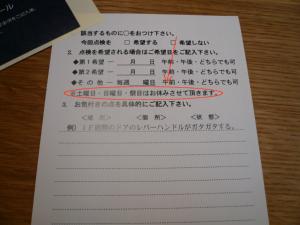 ール
該当するものに○をおつけ下さい。
今回点検を □ 希望する □ 希望しない
2. 点検を希望される場合はご希望日をご記入下さい。
◆第1希望 ー 月 日 午前・午後・どちらでも可
◆第2希望 ー 月 日 午前・午後・どちらでも可
◆その他 ー 毎週 曜日 午前・午後・どちらでも可
※土曜日・日曜日・祭日はお休みさせて頂きます。
3. お気付きの点を具体的にご記入下さい。
＜場所＞ ＜箇所＞ ＜状態＞
例） 1F のドアのレバーハンドルがガタガタする。